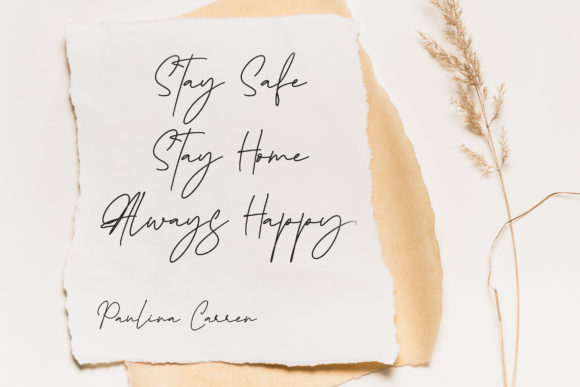 Stay Safe
Stay Home
Always Happy
Paulina Carren